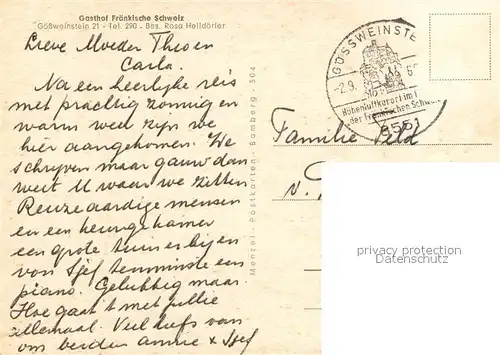 Gasthof Fränkische Schweiz
Gößweinstein 21 - Tel. 290 - Bes. Rosa Helldörfer
Lieve Moeder Theo en
Carla.
Na een heerlijke reis
met prachtig zonnig en
warm weer zijn we
hier aangekomen. We
schrijven maar gauw dan
weet U waar we zitten
Reuze aardige mensen
en een heerl kamer
een grote tuin er bij en
voor Sjef tenminste een
piano. Gelukkig maar.
Hoe gaat 't met jullie
allemaal. Veel liefs van
ons beiden Annie x Sjef
Menzel - Postkarten - Bamberg - 504
GÖSSWEINSTE
-2.9.
Höhenluftkurort im
der Fränkischen Schwei
8551
Familie Feld
v.
datenschutz
personal data protection
Datenschutz